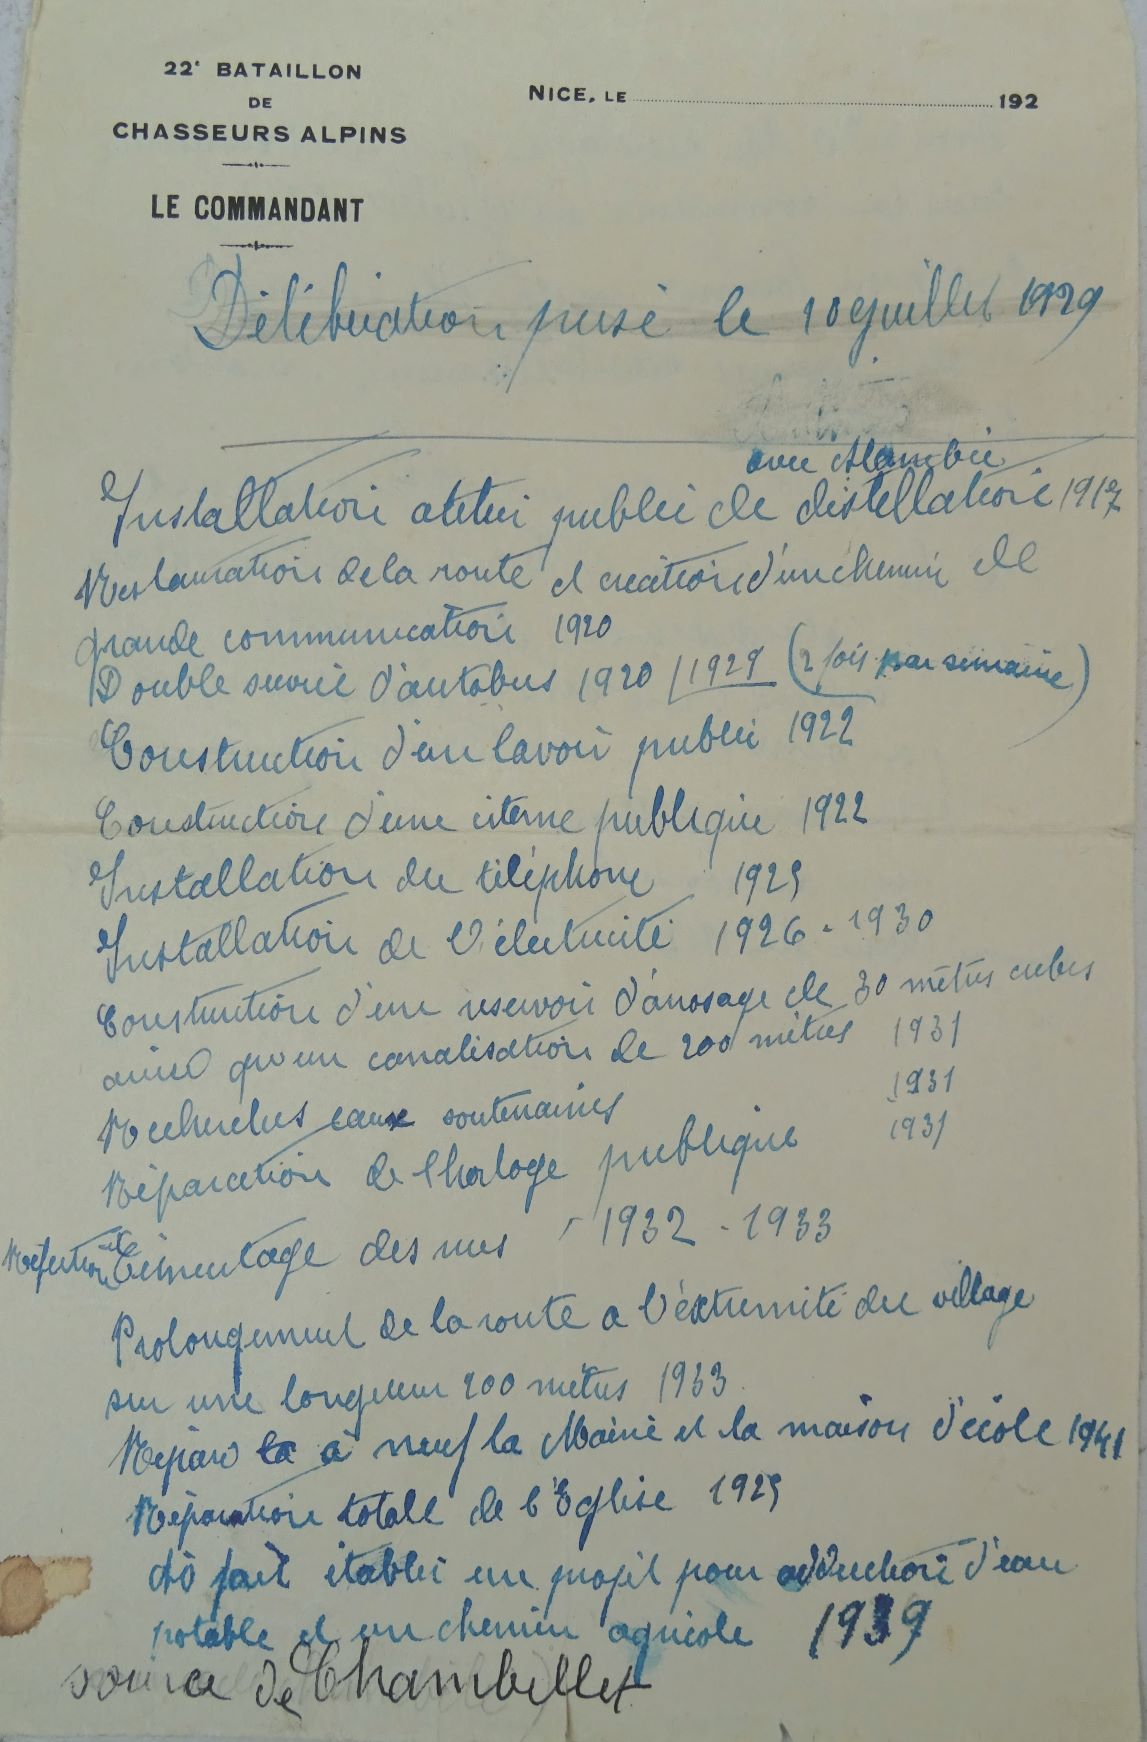 22e BATAILLON
DE
CHASSEURS ALPINS
LE COMMANDANT
NICE, LE 192
Délibération prise le 10 Juillet 1929
avec Alambic
Installation atelier public de distellation 1917
Restauration de la route et création d'un chemin de
grande communication 1920
Double service d'autobus 1920 / 1929 (2 fois par semaine)
Construction d'un lavoir public 1922
Construction d'une citerne publique 1922
Installation du téléphone 1925
Installation de l'électricité 1926 - 1930
Construction d'un reservoir d'arrosage de 30 mètres cubes
ainsi qu'une canalisation de 200 mètres 1931
Recherches eaux souterraines 1931
Réparation de l'horloge publique 1931
Refection et Cimentage des rues 1932 - 1933
Prolongement de la route a l'éxtremité du village
sur une longueur 200 mètres 1933
Réparé à neuf la Mairie et la maison d'école 1941
Réparation totale de l'Eglise 1925
A fait établir un projet pour adduction d'eau
potable et un chemin agricole 1939
source de Chambillet